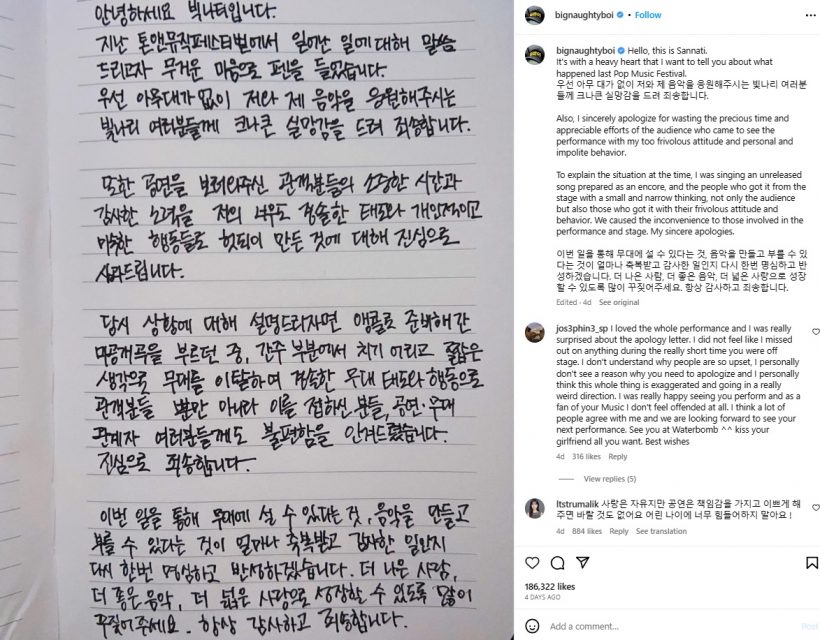 안녕하세요 빅나티입니다.
지난 톤앤뮤직페스티벌에서 일어난 일에 대해 말씀
드리고자 무거운 마음으로 펜을 들었습니다.
우선 아무대가 없이 저와 제 음악을 응원해주시는
빛나리 여러분들께 크나큰 실망감을 드려 죄송합니다.
또한 공연을 보러와주신 관객분들의 소중한 시간과
감사한 노력을 저의 너무도 경솔한 태도와 개인적이고
미숙한 행동들로 헛되이 만든 것에 대해 진심으로
사과드립니다.
당시 상황에 대해 설명드리자면 앵콜로 준비해간
미공개곡을 부르던 중, 간주 부분에서 치기 어리고 짧은
생각으로 무대를 이탈하여 경솔한 무대 태도와 행동으로
관객분들 뿐만 아니라 이를 접하신 분들, 공연·무대
관계자 여러분들께도 불편함을 안겨드렸습니다.
진심으로 죄송합니다.
이번 일을 통해 무대에 설 수 있다는 것, 음악을 만들고
부를 수 있다는 것이 얼마나 축복받고 감사한 일인지
다시 한번 명심하고 반성하겠습니다. 더 나은 사람,
더 좋은 음악, 더 넓은 사랑으로 성장할 수 있도록 많이
꾸짖어주세요. 항상 감사하고 죄송합니다.
bignaughtyboi • Follow
bignaughtyboi Hello, this is Sannati.
It's with a heavy heart that I want to tell you about what
happened last Pop Music Festival.
우선 아무 대가 없이 저와 제 음악을 응원해주시는 빛나리 여러분
들께 크나큰 실망감을 드려 죄송합니다.
Also, I sincerely apologize for wasting the precious time and
appreciable efforts of the audience who came to see the
performance with my too frivolous attitude and personal and
impolite behavior.
To explain the situation at the time, I was singing an unreleased
song prepared as an encore, and the people who got it from the
stage with a small and narrow thinking, not only the audience
but also those who got it with their frivolous attitude and
behavior. We caused the inconvenience to those involved in the
performance and stage. My sincere apologies.
이번 일을 통해 무대에 설 수 있다는 것, 음악을 만들고 부를 수 있
다는 것이 얼마나 축복받고 감사한 일인지 다시 한번 명심하고 반
성하겠습니다. 더 나은 사람, 더 좋은 음악, 더 넓은 사랑으로 성장
할 수 있도록 많이 꾸짖어주세요. 항상 감사하고 죄송합니다.
Edited · 4d See original
jos3phin3_sp I loved the whole performance and I was really
surprised about the apology letter. I did not feel like I missed
out on anything during the really short time you were off
stage. I don't understand why people are so upset, I personally
don't see a reason why you need to apologize and I personally
think this whole thing is exaggerated and going in a really
weird direction. I was really happy seeing you perform and as a
fan of your Music I don't feel offended at all. I think a lot of
people agree with me and we are looking forward to see your
next performance. See you at Waterbomb ^^ kiss your
girlfriend all you want. Best wishes
4d 316 likes Reply
View replies (5)
ltstrumalik 사랑은 자유지만 공연은 책임감을 가지고 이쁘게 해
주면 바랄 것도 없어요 어린 나이에 너무 힘들어하지 말아요 !
4d 884 likes Reply See translation
186,322 likes
4 DAYS AGO
Add a comment...
Post